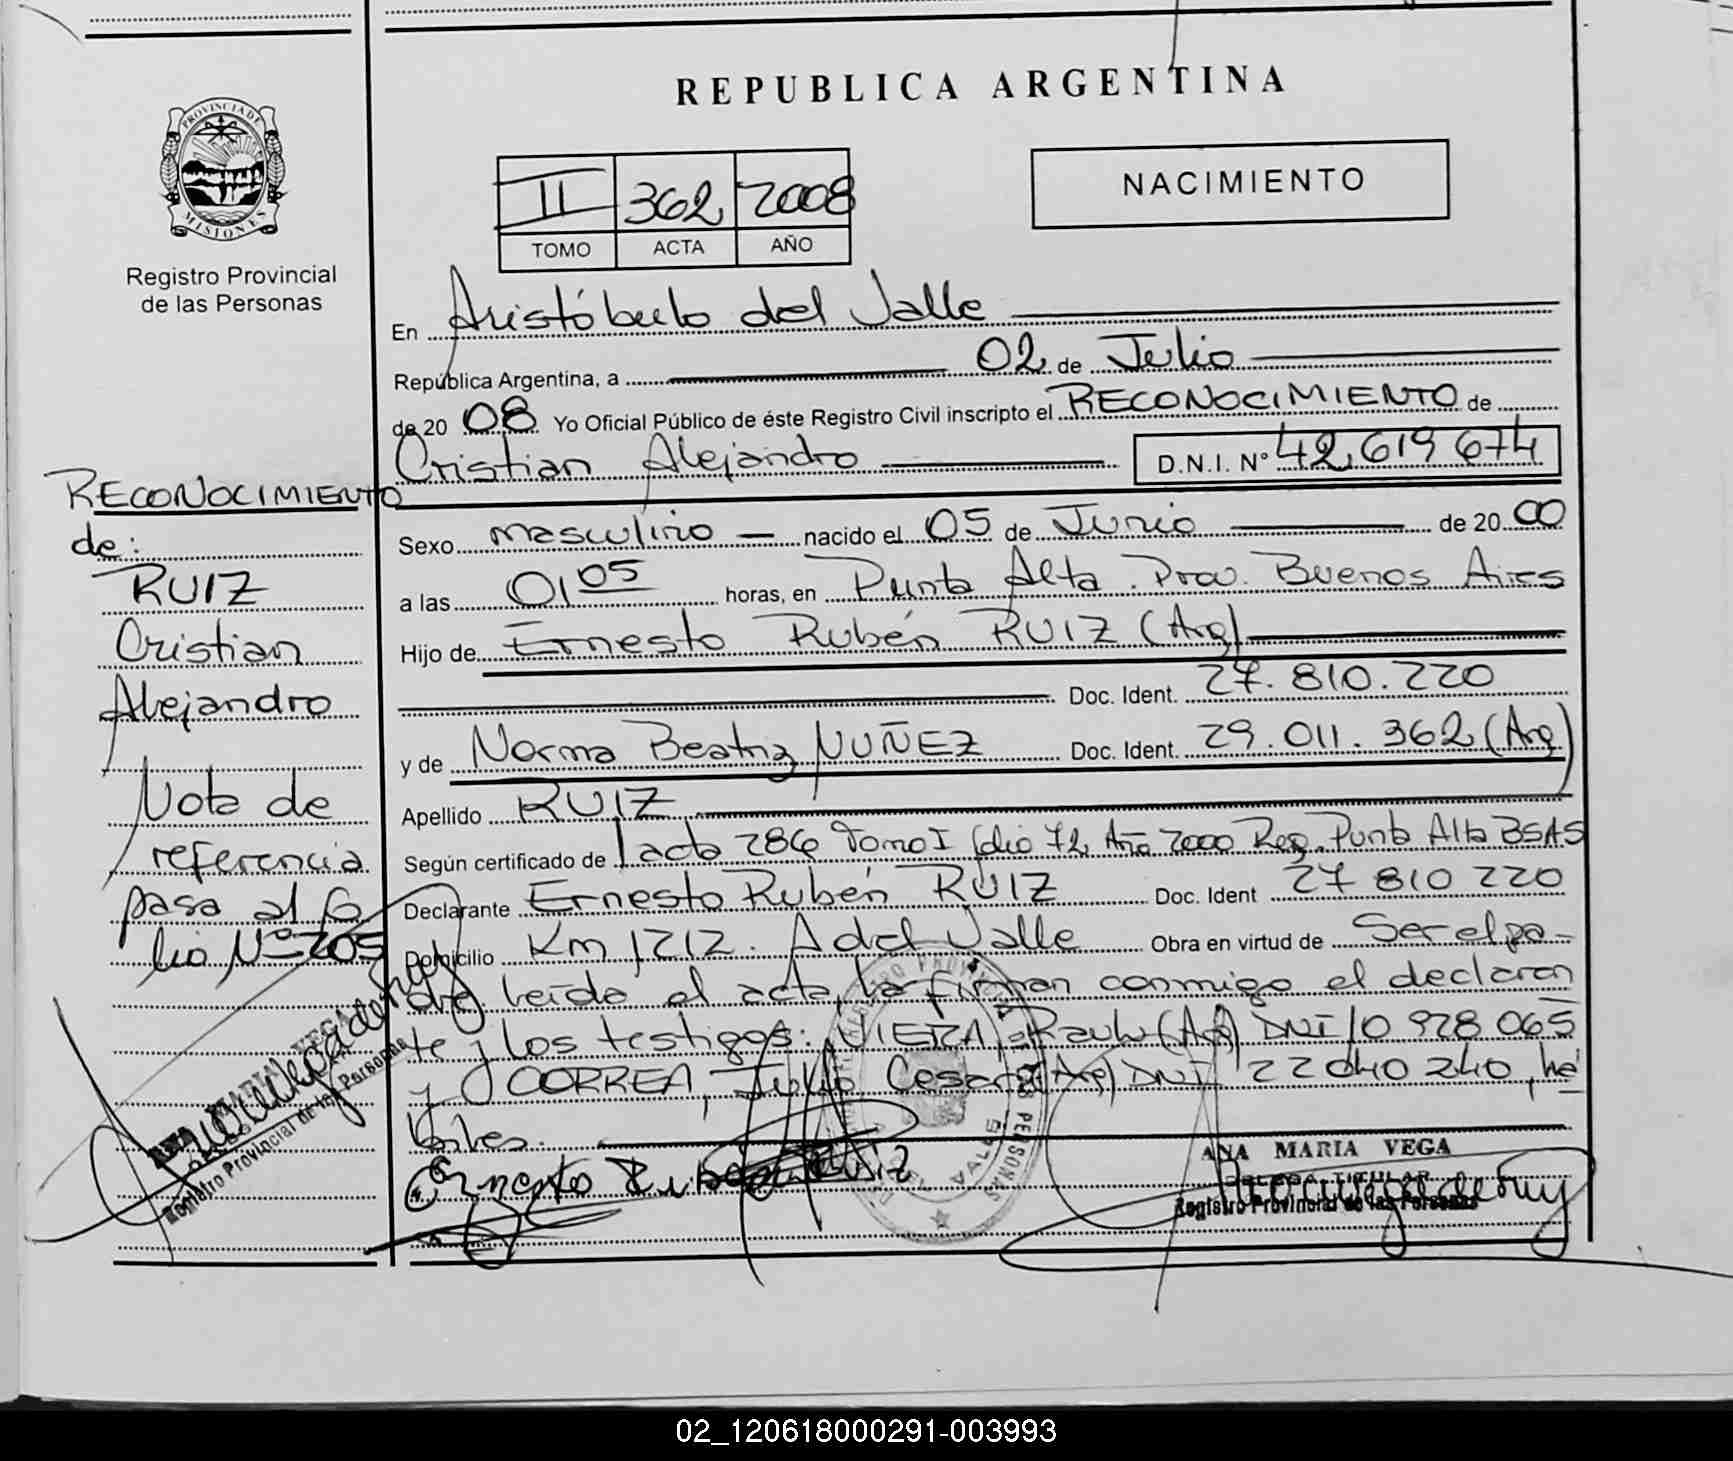 REPUBLICA ARGENTINA
PROVINCIA DE
MISIONES
Registro Provincial
de las Personas
II 362 2008
TOMO ACTA AÑO
NACIMIENTO
En Aristóbulo del Valle
República Argentina, a 02 de Julio
de 20 08 Yo Oficial Público de éste Registro Civil inscripto el RECONOCIMIENTO de
Cristian Alejandro D.N.I. Nº 42.619 674
Sexo masculino nacido el 05 de Junio de 20 00
a las 01 05 horas, en Punta Alta. Prov. Buenos Aires
Hijo de Ernesto Rubén RUIZ (Arg)
Doc. Ident. 27.810.220
y de Norma Beatriz NUÑEZ Doc. Ident. 29.011.362 (Arg)
Apellido RUIZ
Según certificado de acta 286 Tomo I folio 72 Año 2000 Reg. Punta Alta BSAS
Declarante Ernesto Rubén RUIZ Doc. Ident 27 810 220
Domicilio Km 1212. A del Valle Obra en virtud de Ser el pa-
dre, leída el acta, la firman conmigo el declaran
te y los testigos: VIERA, Raul (Arg) DNI 10 928 065
y CORREA, Julio Cesar (Arg) DNI 22 040 240, há
biles.
Ernesto Ruben Ruiz
ANA MARIA VEGA
DELEGADA TITULAR
Registro Provincial de las Personas
RECONOCIMIENTO
de:
RUIZ
Cristian
Alejandro
Nota de
referencia
pasa al fo
lio Nº 205
ANA MARIA VEGA
Registro Provincial de las Personas
02_120618000291-003993